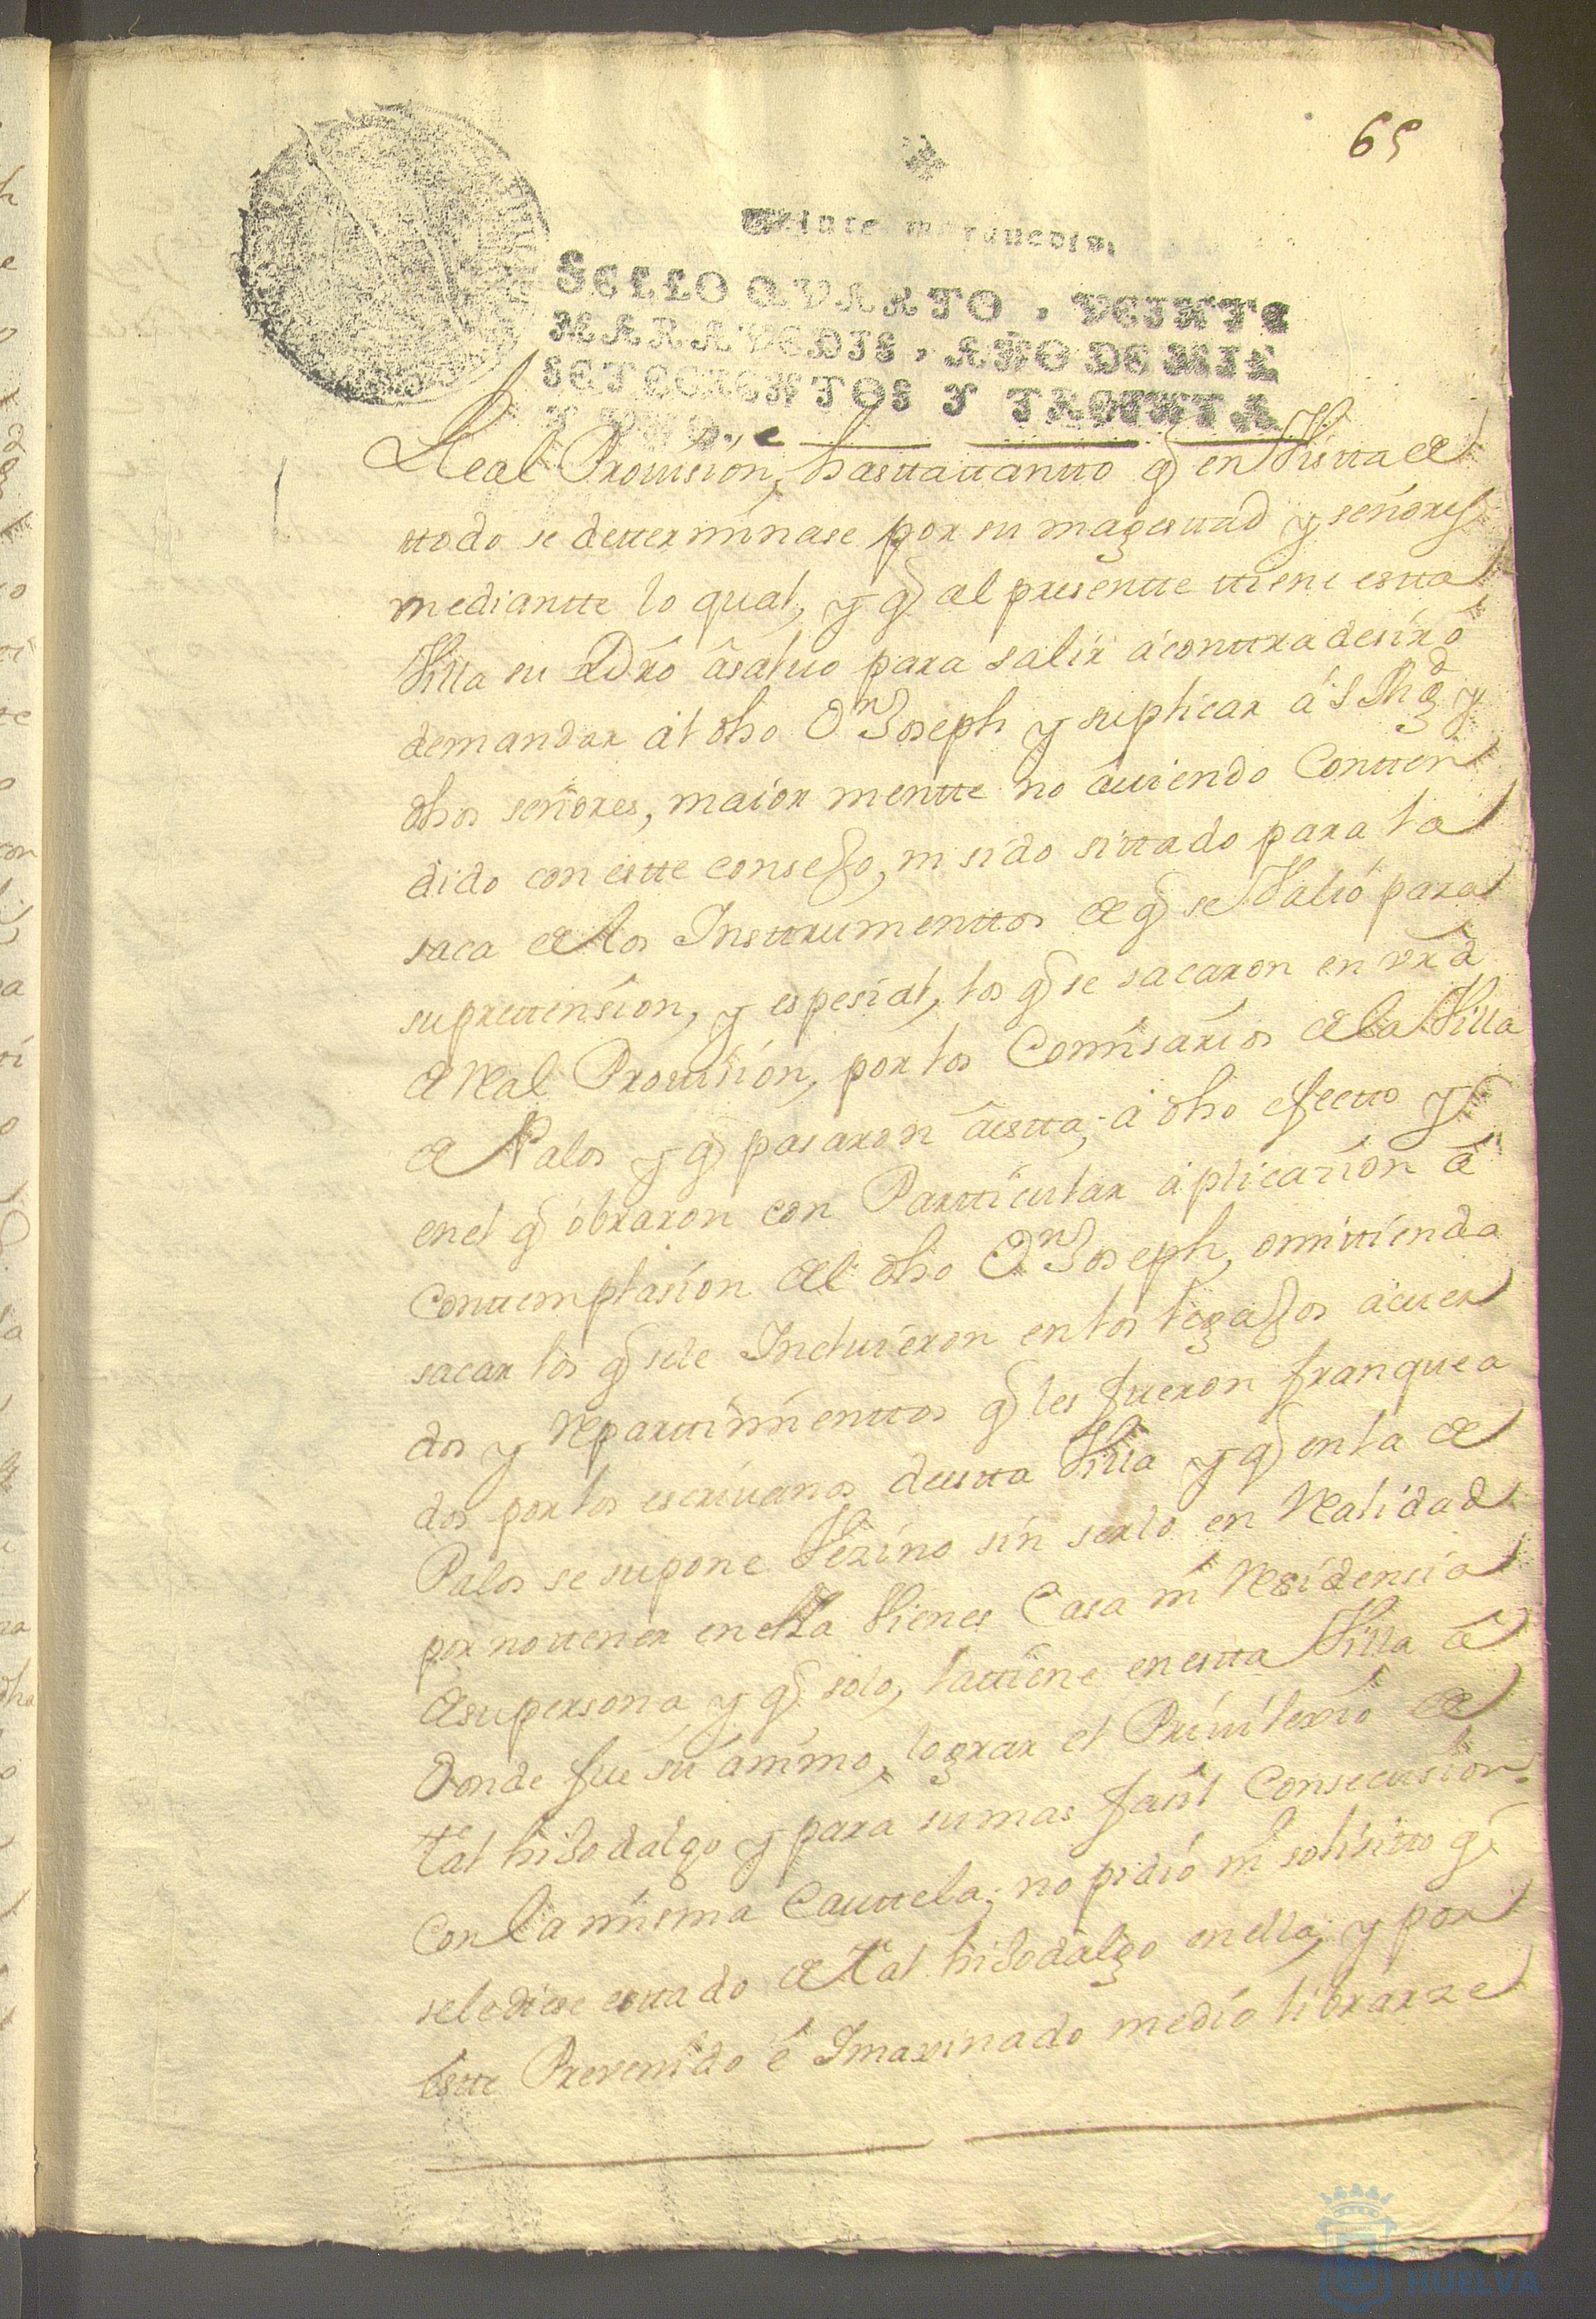 65
Veinte maravedis.
SELLO QVARTO, VEINTE
MARAVEDIS, AÑO DE MIL
SETECIENTOS Y TREINTA
Y UNO.
Real Provision, hasttattantto q̃ en Vistta de
ttodo se detterminase por su magesttad y señores
mediantte lo qual, y q̃ al presentte ttiene estta
Villa su dr̃o âsalvo para salir â contradesir ô
demandar âl dho Dn Joseph y suplicar â S Mgd y
dhos señores, maiormentte no âviendo Contten
dido con estte consejo, ni sido sittado para la
saca de los Insttrumenttos de q̃ se Valió para
su prettension, y espesial, los q̃ se sacaron en vrd
de Real Provision, por los Comisarios de la Villa
de Palos y q̃ pasaron âestta, â dho efectto y
en el q̃ obraron con Partticular âplicazion â
Conttemplasion del dho Dn Joseph, omittiendo
sacar los q̃ se le Incluieron en los legajos âcuer
dos y Reparttimienttos q̃ les fueron franquea
dos por los escrivanos de estta Villa y q̃ en la de
Palos se supone Vezino sin serlo en Realidad
por no ttener en ella Vienes Casa ni Residensia
de su persona y q̃ solo, la ttiene en estta Villa â
Donde fue su animo, lograr el Privilexio de
tal hijodalgo y para su mas fasil Consecusion
Con la misma Cauttela, no pidió ni solisitto q̃
se le diese esttado de tal hijodalgo en ella, y por
estte Prevenido ê Imaxinado medio librarze
HUELVA